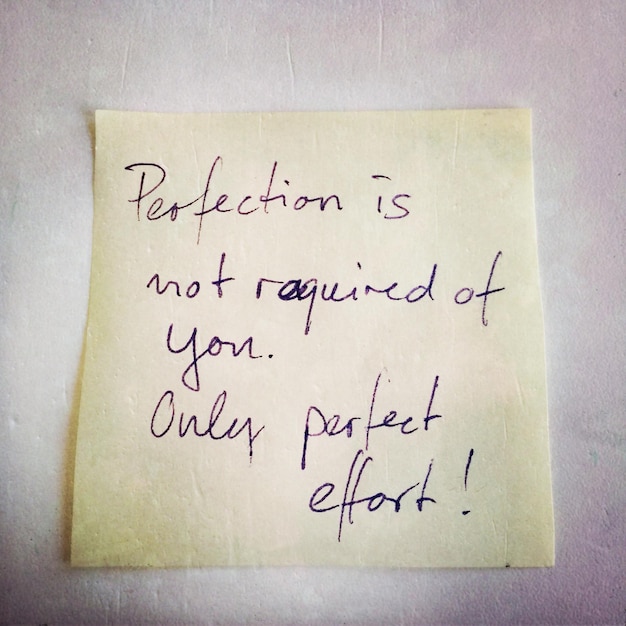 Perfection is
not required of
you.
Only perfect
effort!